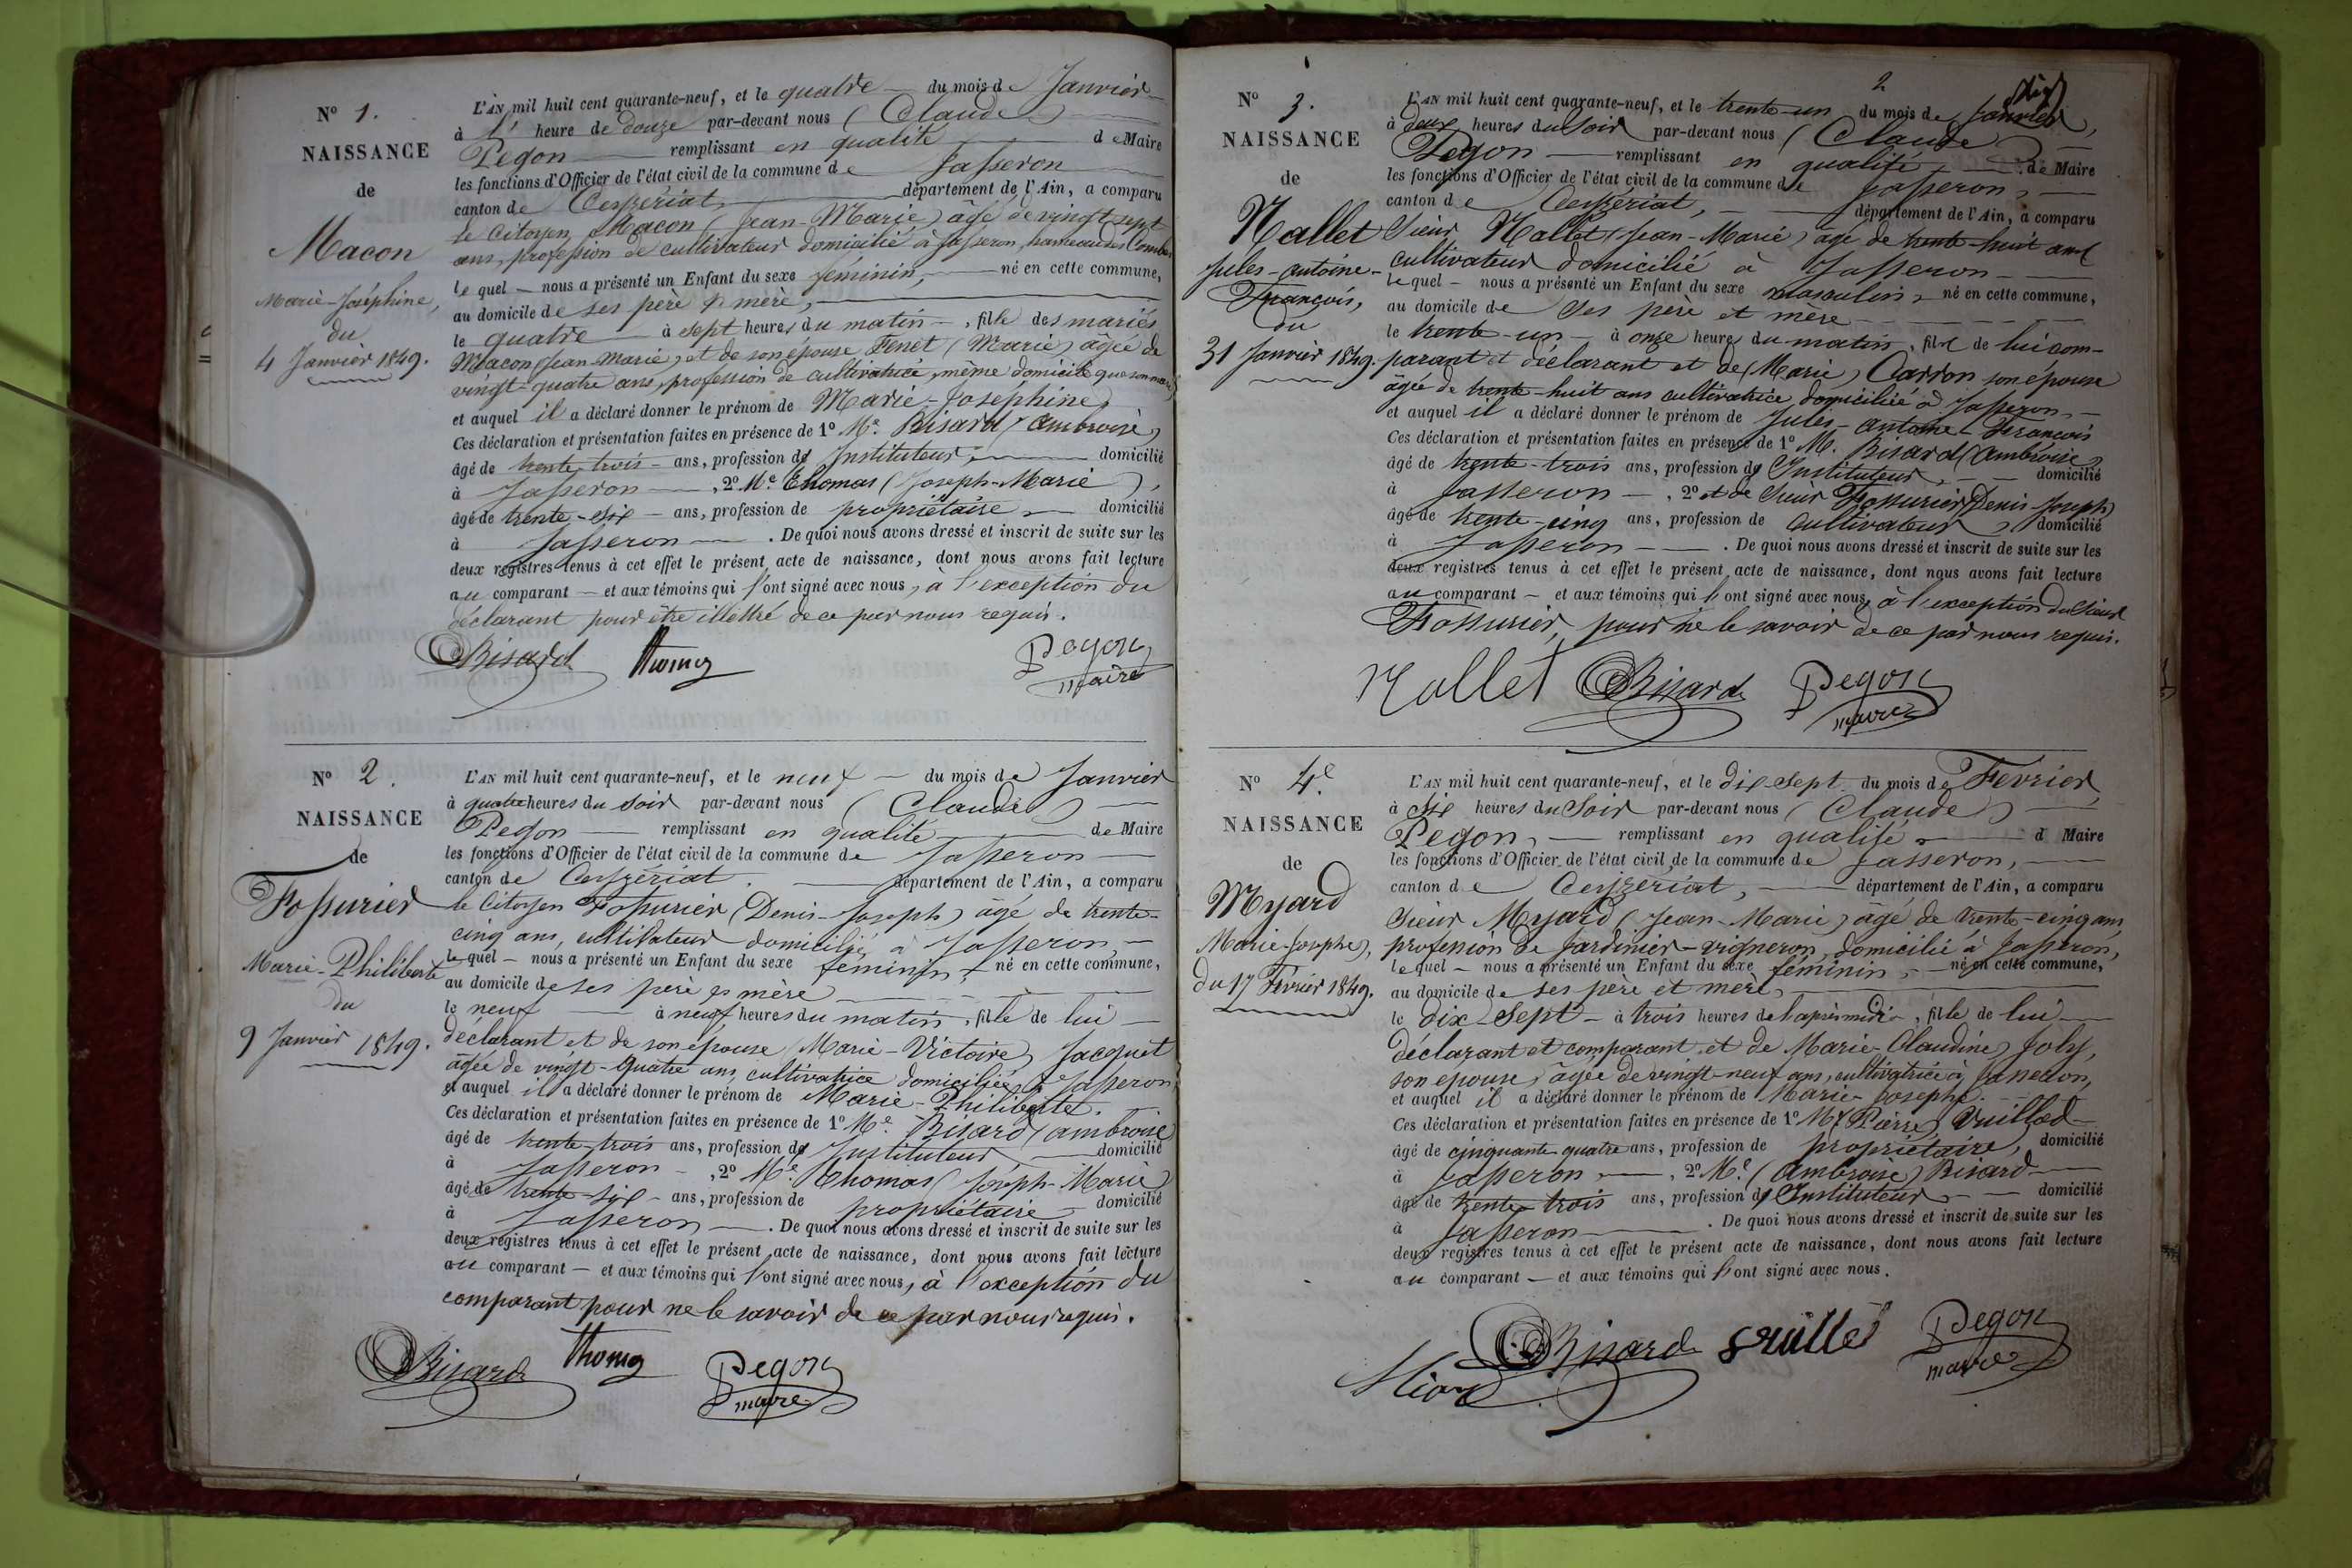 N° 1.
NAISSANCE
de
Macon
Marie-Joséphine,
du
4 Janvier 1849.
L'AN mil huit cent quarante-neuf, et le quatre du mois de Janvier
à l' heure de douze par-devant nous (Claude)
Pegon remplissant en qualité de Maire
les fonctions d'Officier de l'état civil de la commune de Jasseron
canton de Ceyzériat, département de l'Ain, a comparu
le Citoyen Macon (Jean-Marie) âgé de vingt-sept
ans, profession de cultivateur domicilié à Jasseron, hameau des Combes
lequel nous a présenté un Enfant du sexe féminin, né en cette commune,
au domicile de ses père & mère,
le quatre à sept heures du matin, fille des mariés
Macon (Jean-Marie) et de son épouse Tenet (Marie) âgée de
vingt-quatre ans, profession de cultivatrice, même domicile que son mari
et auquel il a déclaré donner le prénom de Marie-Joséphine,
Ces déclaration et présentation faites en présence de 1° Me. Bisard (Ambroise)
âgé de trente-trois ans, profession d' Instituteur, domicilié
à Jasseron, 2° Me. Thomas (Joseph-Marie),
âgé de trente-six ans, profession de propriétaire, domicilié
à Jasseron. De quoi nous avons dressé et inscrit de suite sur les
deux registres tenus à cet effet le présent acte de naissance, dont nous avons fait lecture
au comparant et aux témoins qui l'ont signé avec nous, à l'exception du
déclarant pour être illettré de ce par nous requis.
Bisard Thomas Pegon
maire
N° 2.
NAISSANCE
de
Fossurier
Marie-Philiberte
du
9 Janvier 1849.
L'AN mil huit cent quarante-neuf, et le neuf du mois de Janvier
à quatre heures du soir par-devant nous (Claude)
Pegon remplissant en qualité de Maire
les fonctions d'Officier de l'état civil de la commune de Jasseron
canton de Ceyzériat. département de l'Ain, a comparu
le Citoyen Fossurier (Denis-Joseph) âgé de trente-
cinq ans, cultivateur domicilié à Jasseron,
lequel nous a présenté un Enfant du sexe féminin, né en cette commune,
au domicile de ses père & mère
le neuf à neuf heures du matin, fille de lui
déclarant et de son épouse (Marie-Victoire) Jacquet
âgée de vingt-quatre ans, cultivatrice domiciliée à Jasseron,
et auquel il a déclaré donner le prénom de Marie-Philiberte.
Ces déclaration et présentation faites en présence de 1° Me. Bisard (Ambroise)
âgé de trente-trois ans, profession d' Instituteur domicilié
à Jasseron, 2° Me. Thomas (Joseph-Marie)
âgé de trente-six ans, profession de propriétaire domicilié
à Jasseron. De quoi nous avons dressé et inscrit de suite sur les
deux registres tenus à cet effet le présent acte de naissance, dont nous avons fait lecture
au comparant et aux témoins qui l'ont signé avec nous, à l'exception du
comparant pour ne le savoir de ce par nous requis.
Bisard Thomas Pegon
maire
2
N° 3.
NAISSANCE
de
Nallet
Jules-Antoine-
François,
du
31 Janvier 1849.
L'AN mil huit cent quarante-neuf, et le trente-un du mois de Janvier,
à deux heures du soir par-devant nous (Claude)
Pegon remplissant en qualité de Maire
les fonctions d'Officier de l'état civil de la commune de Jasseron,
canton de Ceyzériat, département de l'Ain, a comparu
Sieur Nallet (Jean-Marie) âgé de trente-huit ans
cultivateur domicilié à Jasseron
lequel nous a présenté un Enfant du sexe masculin, né en cette commune,
au domicile de ses père et mère
le trente-un à onze heures du matin, fils de lui com-
parant et déclarant et de (Marie) Carron son épouse
âgée de trente-huit ans cultivatrice domiciliée à Jasseron,
et auquel il a déclaré donner le prénom de Jules-Antoine-François
Ces déclaration et présentation faites en présence de 1° M. Bisard (Ambroise)
âgé de trente-trois ans, profession d' Instituteur, domicilié
à Jasseron, 2° et de Sieur Fossurier (Denis-Joseph)
âgé de trente-cinq ans, profession de Cultivateur, domicilié
à Jasseron. De quoi nous avons dressé et inscrit de suite sur les
deux registres tenus à cet effet le présent acte de naissance, dont nous avons fait lecture
au comparant et aux témoins qui l'ont signé avec nous, à l'exception du Sieur
Fossurier, pour ne le savoir de ce par nous requis.
Nallet Bisard Pegon
maire
N° 4e.
NAISSANCE
de
Myard
Marie-Josephe,
Du 17 Février 1849.
L'AN mil huit cent quarante-neuf, et le dix-sept du mois de Fevrier,
à six heures du soir par-devant nous (Claude)
Pegon, remplissant en qualité d Maire
les fonctions d'Officier de l'état civil de la commune de Jasseron,
canton de Ceyzeriat, département de l'Ain, a comparu
Sieur Myard (Jean-Marie) âgé de trente-cinq ans,
profession de Jardinier-vigneron, domicilié à Jasseron,
lequel nous a présenté un Enfant du sexe féminin, né en cette commune,
au domicile de ses père et mère,
le dix-sept à trois heures de l'après midi, fille de lui
déclarant et comparant et de Marie-Claudine) Joly,
son epouse, âgée de vingt-neuf ans, cultivatrice à Jasseron,
et auquel il a déclaré donner le prénom de Marie-Josephe.
Ces déclaration et présentation faites en présence de 1° Mr. (Pierre) Vuillod
âgé de cinquante-quatre ans, profession de propriétaire, domicilié
à Jasseron, 2° Me. (Ambroise) Bisard
âgé de trente-trois ans, profession d' Instituteur domicilié
à Jasseron. De quoi nous avons dressé et inscrit de suite sur les
deux registres tenus à cet effet le présent acte de naissance, dont nous avons fait lecture
au comparant et aux témoins qui l'ont signé avec nous.
Miard Bisard Pegon
maire